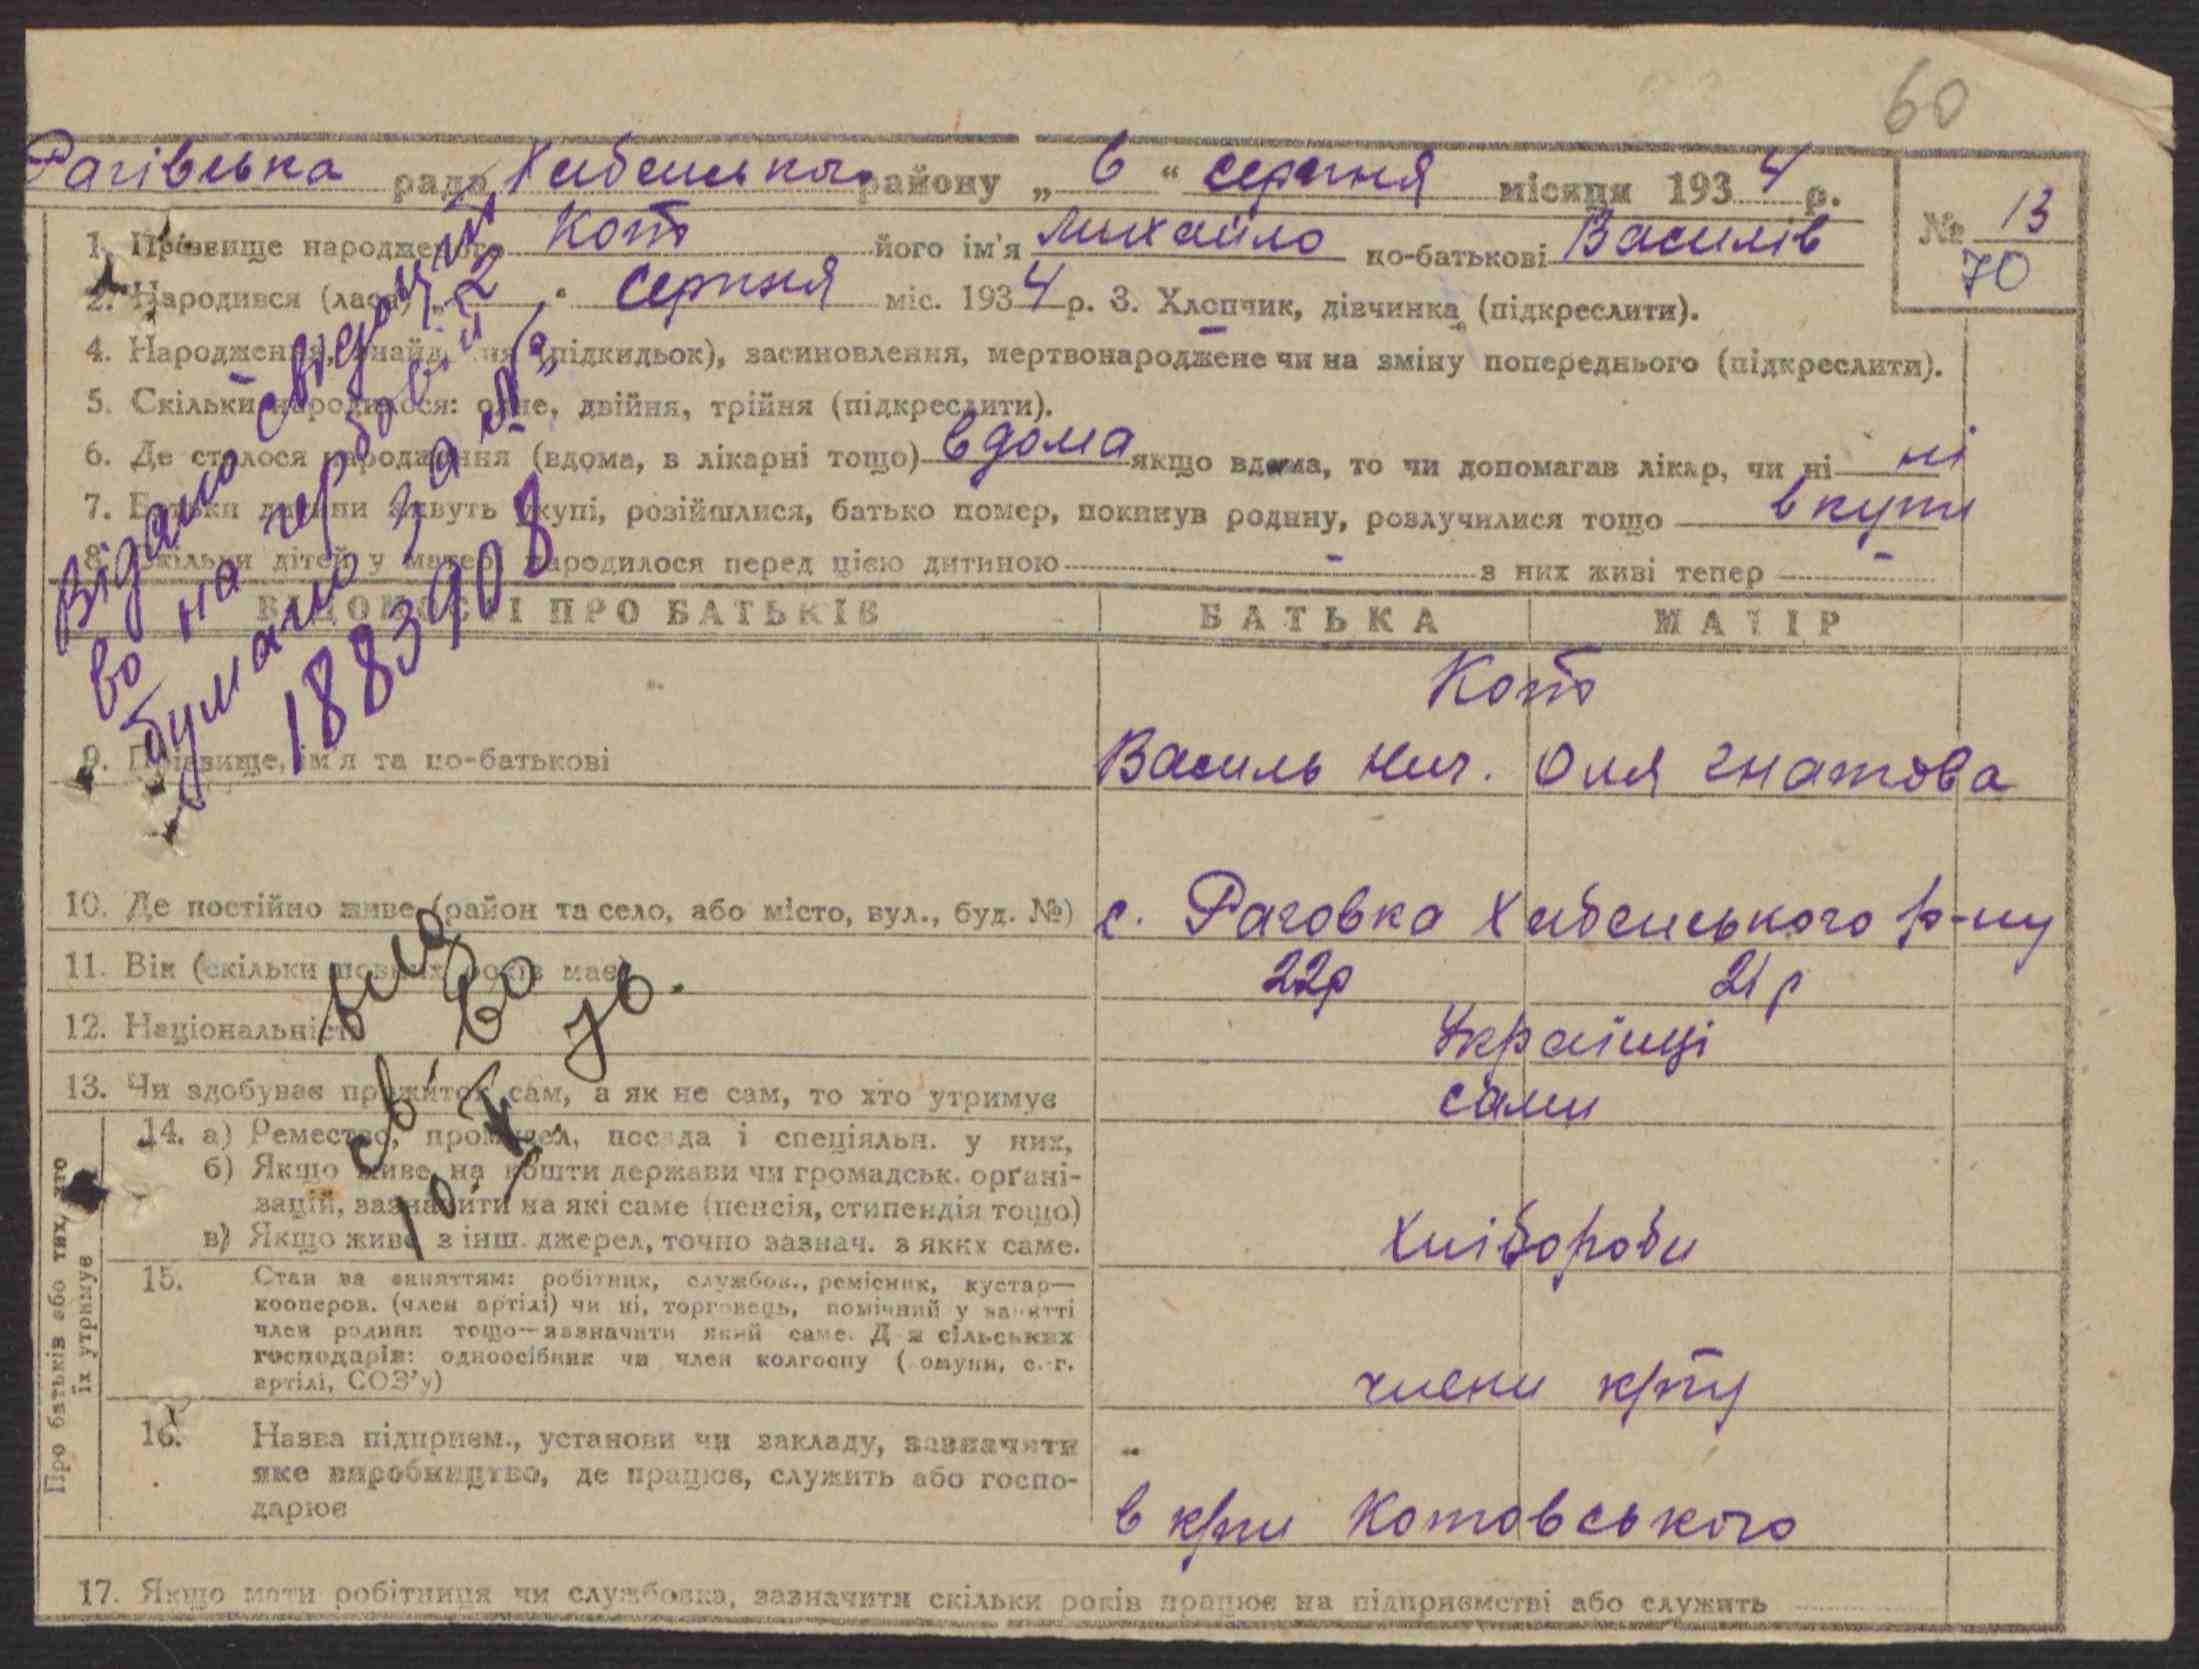 60
Рагівська рада Хабенського району „ 6 “ серпня місяця 1934 р.
№ 13
70
1. Прізвище народженого Кот його ім'я Михайло по-батькові Василів
2. Народився (лася) „ 2 “ серпня міс. 1934 р. 3. Хлопчик, дівчинка (підкреслити).
4. Народження, знайдення (підкидьок), засиновлення, мертвонароджене чи на зміну попереднього (підкреслити).
5. Скільки народилося: одне, двійня, трійня (підкреслити).
6. Де сталося народження (вдома, в лікарні тощо) вдома якщо вдома, то чи допомагав лікар, чи ні ні
7. Батьки дитини живуть вкупі, розійшлися, батько помер, покинув родину, розлучилися тощо вкупи
8. Скільки дітей у матері народилося перед цією дитиною - з них живі тепер -
Відано свідоцтво
на гербовой
бумаги за №
1883908
ВІДОМОСТІ ПРО БАТЬКІВ БАТЬКА МАТІР
Кот
9. Прізвище, ім'я та по-батькові Василь Нич. Оля Гнатова
10. Де постійно живе (район та село, або місто, вул., буд. №) с. Раговка Хабенського р-ну
11. Вік (скільки повних років має) 22р 21р
12. Національність Українці
13. Чи здобуває прожиток сам, а як не сам, то хто утримує сами
Про батьків або тих, хто їх утримує
14. а) Ремество, промисел, посада і спеціяльн. у них,
б) Якщо живе на кошти держави чи громадськ. органі-
зацій, зазначити на які саме (пенсія, стипендія тощо)
в) Якщо живе з інш. джерел, точно зазнач. з яких саме.
Хлібороби
15. Стан за заняттям: робітник, службов., ремісник, кустар—
кооперов. (член артілі) чи ні, торговець, помічний у занятті
член родини тощо—зазначити який саме. Для сільських
господарів: одноосібник чи член колгоспу (комуни, с.-г.
артілі, СОЗ'у)
члени крту
16. Назва підприєм., установи чи закладу, зазначити
яке виробництво, де працює, служить або госпо-
дарює
в крти Котовського
17. Якщо мати робітниця чи службовка, зазначити скільки років працює на підприємстві або служить